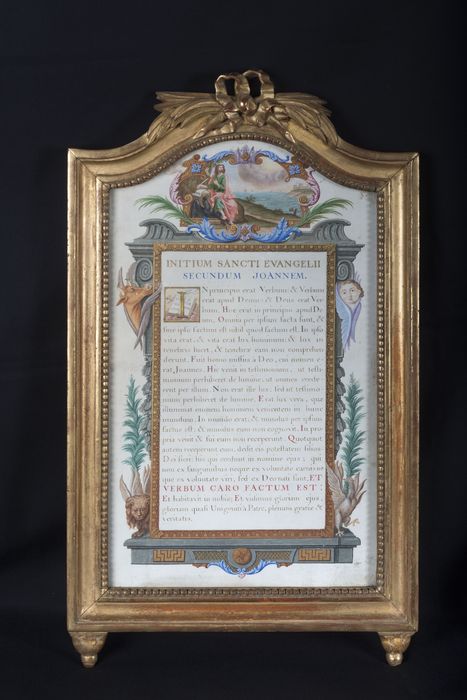 INITIUM SANCTI EVANGELII
SECUNDUM JOANNEM.
IN principio erat Verbum & Verbum
erat apud Deum & Deus erat Ver
bum. Hoc erat in principio apud De
um. Omnia per ipsum facta sunt, &
sine ipso factum est nihil quod factum est. In ipso
vita erat, & vita erat lux hominum: & lux in
tenebris lucet, & tenebræ eam non comprehen
derunt. Fuit homo missus à Deo, cui nomen e-
rat Joannes. Hic venit in testimonium, ut testi-
monium perhiberet de lumine, ut omnes crede-
rent per illum. Non erat ille lux, sed ut testimo-
nium perhiberet de lumine. Erat lux vera, quæ
illuminat omnem hominem venientem in hunc
mundum. In mundo erat, & mundus per ipsum
factus est; & mundus eum non cognovit. In pro
pria venit & sui eum non receperunt. Quotquot
autem receperunt eum, dedit eis potestatem filios
Dei fieri; his qui credunt in nomine ejus; qui
non ex sanguinibus neque ex voluntate carnis ne
que ex voluntate viri, sed ex Deo nati sunt. ET
VERBUM CARO FACTUM EST:
Et habitavit in nobis; Et vidimus gloriam ejus,
gloriam quasi Unigeniti à Patre, plenum gratiæ &
veritatis.